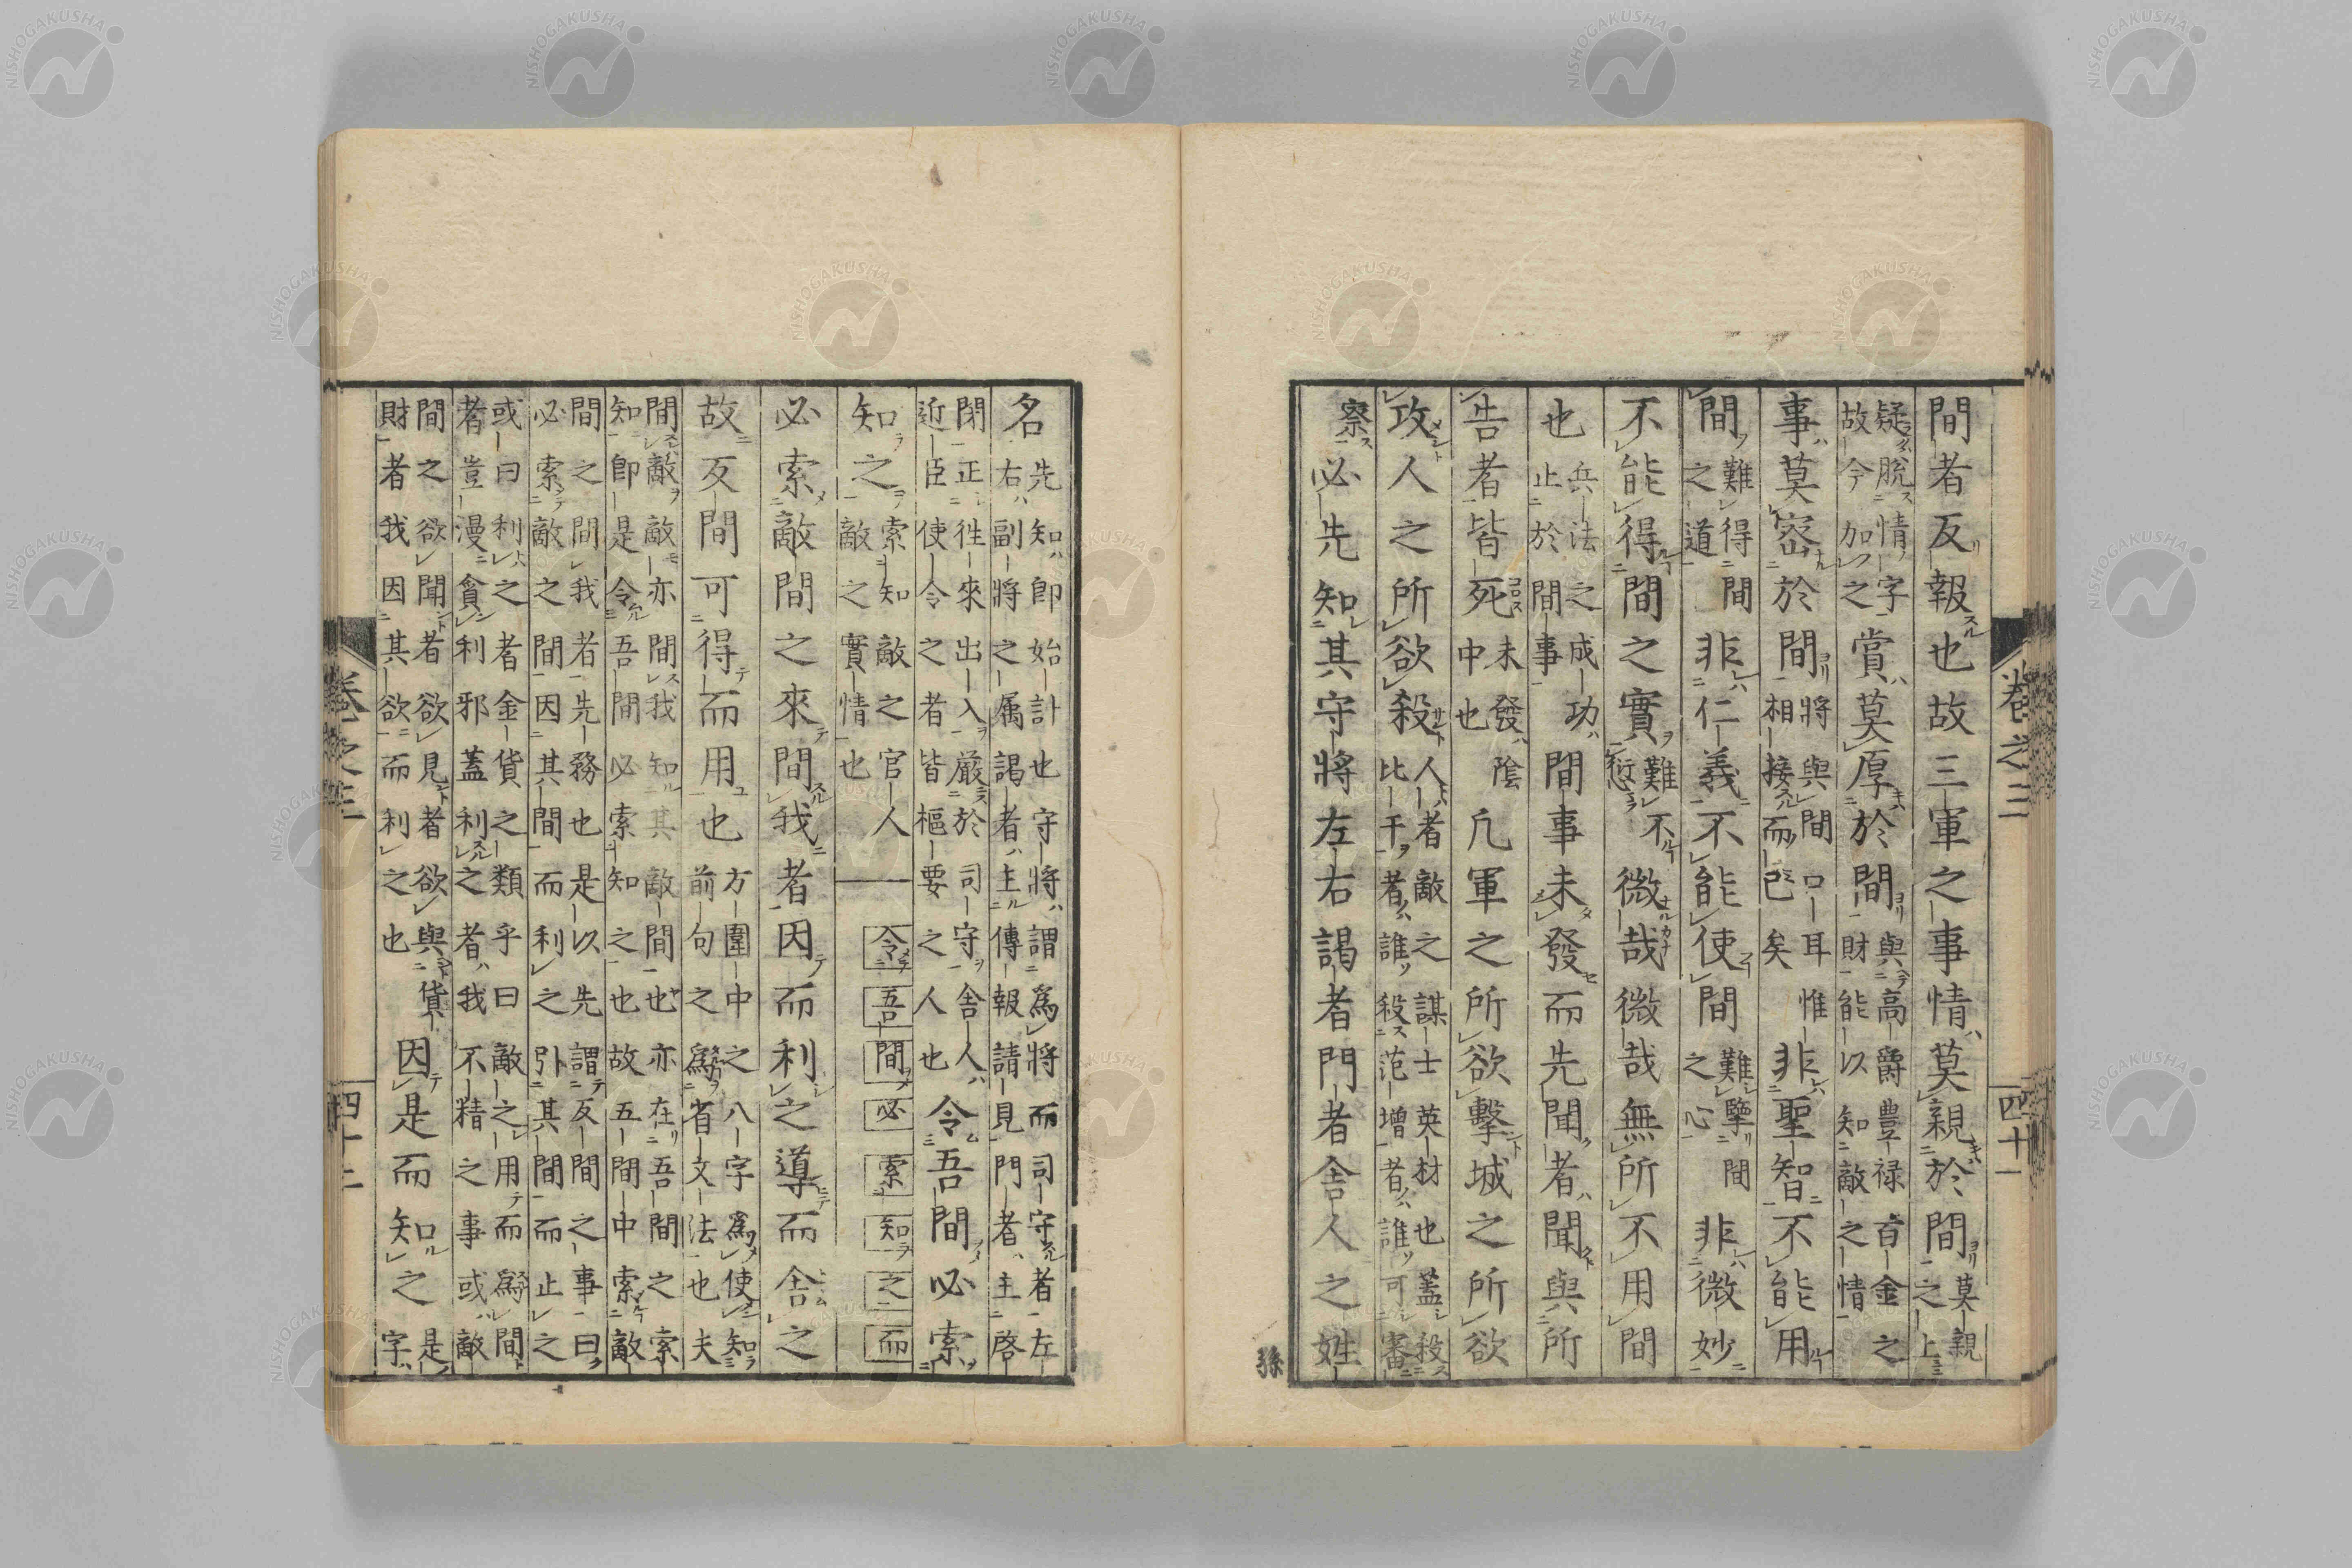 卷之三
四十一
間者反報也故三軍之事情莫親於間莫親
之上
疑脫情字
故今加之
賞莫厚於間
與高爵豊禄百金之
財能以知敵之情
事莫密於間
將與間口耳惟
相接而已矣
非聖智不能用
間
難得間
之道
非仁義不能使間
難鑒間
之心
非微妙
不能得間之實
難不
愆
微哉微哉無所不用間
也
兵法之成功
止於間事
間事未發而先聞者聞與所
告者皆死
未發陰
中也
凢軍之所欲擊城之所欲
攻人之所欲殺
人者敵之謀士英材也蓋殺
比干者誰殺范增者誰可審
察必先知其守將左右謁者門者舍人之姓
孫
名
先知即始計也守將謂爲將而司守者左
右副將之属謁者主傳報請見門者主啓
閉正徃來出入嚴於司守舍人
近臣使令之者皆樞要之人也
令吾間必索
知之
索知敵之官人
敵之實情也
令吾間必索知之而
必索敵間之來間我者因而利之導而舍之
故反間可得而用也
方圍中之八字爲使知
前句之爲省文法也夫
間敵敵亦間我知其敵間也亦在吾間之索
知即是令吾間必索知之也故五間中索敵
間之間我者先務也是以先謂反間之事曰
必索敵之間因其間而利之引其間而止之
或曰利之者金貨之類乎曰敵之用而爲間
者豈漫貪利邪蓋利之者我不精之事或敵
間之欲聞者欲見者欲與貨
財者我因其欲而利之也
因是而知之
是
字
卷之三
四十二
NISHOGAKUSHA